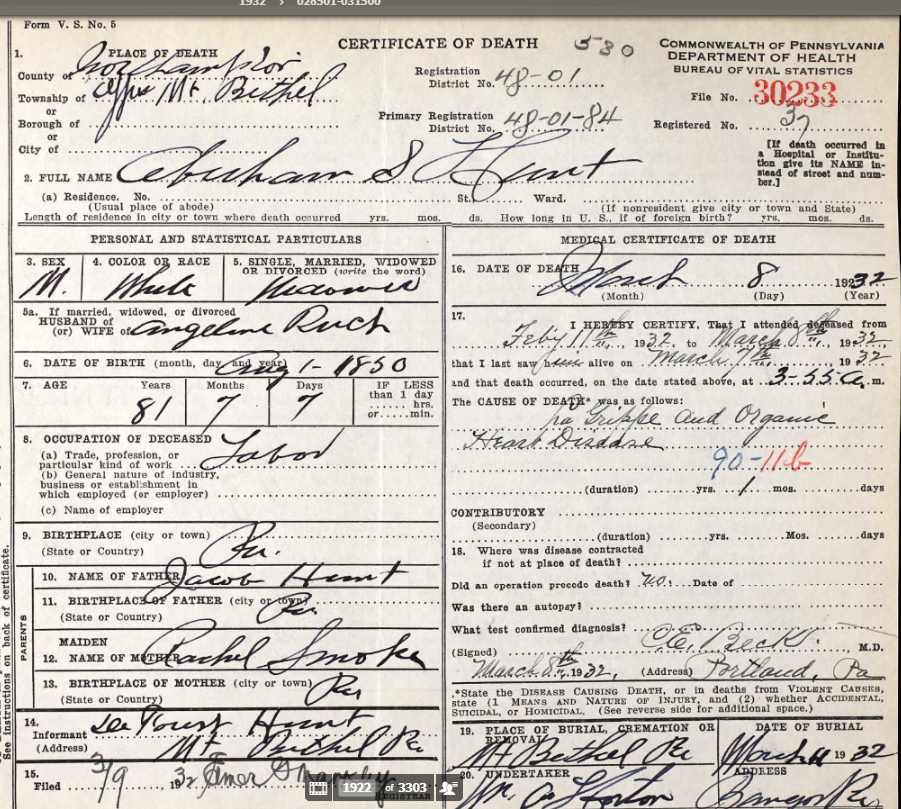 1932 › 028501-031500
Form V. S. No. 5
CERTIFICATE OF DEATH 530
COMMONWEALTH OF PENNSYLVANIA
DEPARTMENT OF HEALTH
BUREAU OF VITAL STATISTICS
1. PLACE OF DEATH
County of Northampton
Township of Upper Mt. Bethel
or
Borough of
or
City of
Registration District No. 48-01
Primary Registration District No. 48-01-84
File No. 30233
Registered No. 37
[If death occurred in a Hospital or Institution give its NAME instead of street and number.]
2. FULL NAME Abraham S Hunt
(a) Residence. No. St., Ward.
(Usual place of abode) (If nonresident give city or town and State)
Length of residence in city or town where death occurred yrs. mos. ds. How long in U. S., if of foreign birth? yrs. mos. ds.
PERSONAL AND STATISTICAL PARTICULARS
3. SEX M.
4. COLOR OR RACE White
5. SINGLE, MARRIED, WIDOWED OR DIVORCED (write the word) Widower
5a. If married, widowed, or divorced
HUSBAND of
(or) WIFE of Angeline Ruch
6. DATE OF BIRTH (month, day, and year) Aug 1 - 1850
7. AGE Years 81 Months 7 Days 7 IF LESS than 1 day hrs. or min.
8. OCCUPATION OF DECEASED
(a) Trade, profession, or particular kind of work Labor
(b) General nature of industry, business or establishment in which employed (or employer)
(c) Name of employer
9. BIRTHPLACE (city or town)
(State or Country) Pa.
PARENTS
10. NAME OF FATHER Jacob Hunt
11. BIRTHPLACE OF FATHER (city or town)
(State or Country) Pa.
12. MAIDEN NAME OF MOTHER Rachel Smoke
13. BIRTHPLACE OF MOTHER (city or town)
(State or Country) Pa
14. Informant Hunt
(Address) Mt Bethel Pa
15. Filed 3/9 1932 Elmer
REGISTRAR
See instructions on back of certificate.
MEDICAL CERTIFICATE OF DEATH
16. DATE OF DEATH March 8 1932
(Month) (Day) (Year)
17. I HEREBY CERTIFY, That I attended deceased from
Feby 11th, 1932, to March 8th, 1932,
that I last saw him alive on March 7th, 1932
and that death occurred, on the date stated above, at 3-55 a. m.
The CAUSE OF DEATH* was as follows:
La Grippe and Organic
Heart Disease
90-11b
(duration) yrs. 1 mos. days
CONTRIBUTORY
(Secondary)
(duration) yrs. Mos. days
18. Where was disease contracted
if not at place of death?
Did an operation precede death? no. Date of
Was there an autopsy?
What test confirmed diagnosis?
(Signed) C.E. Beck. M.D.
March 8th, 1932, (Address) Portland, Pa
*State the DISEASE CAUSING DEATH, or in deaths from VIOLENT CAUSES, state (1 MEANS AND NATURE OF INJURY, and (2) whether ACCIDENTAL, SUICIDAL, or HOMICIDAL. (See reverse side for additional space.)
19. PLACE OF BURIAL, CREMATION OR REMOVAL Mt Bethel Pa
DATE OF BURIAL March 11 1932
20. UNDERTAKER Wm. 
ADDRESS Bangor Pa
1922 of 3303